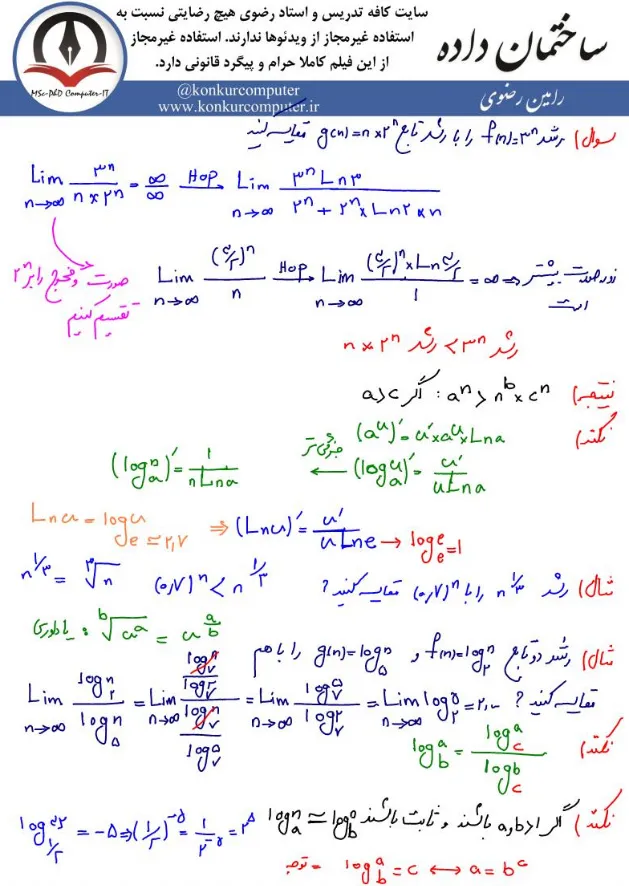 سایت کافه تدریس و استاد رضوی هیچ رضایتی نسبت به
استفاده غیرمجاز از ویدئوها ندارند. استفاده غیرمجاز
از این فیلم کاملا حرام و پیگرد قانونی دارد.
ساختمان داده
MSc-PhD Computer-IT
@konkurcomputer
www.konkurcomputer.ir
رامین رضوی
سوال) رشد f(n)=۳^n را با رشد تابع g(n)=n×۲^n مقایسه کنید
Lim n→∞ ۳^n / (n×۲^n) = ∞/∞ HOP→ Lim n→∞ ۳^n Ln۳ / (۲^n + ۲^n×Ln۲×n)
صورت و مخرج را بر ۲^n تقسیم کنیم
Lim n→∞ (۳/۲)^n / n HOP→ Lim n→∞ (۳/۲)^n×Ln ۳/۲ / ۱ = ∞ ⇒ زور صورت بیشتر است
رشد n×۲^n < رشد ۳^n
نتیجه) اگر a>c : a^n > n^b×c^n
نکته) (a^u)'=u'×a^u×Lna
(log_a n)' = ۱/(nLna) جزئی تر ← (log_a u)' = u'/(uLna)
Lnu = log_e u e≃۲,۷ ⇒ (Lnu)' = u'/(uLne) → log_e e=۱
مثال) رشد n^{۱/۳} را با (۰,۷)^n مقایسه کنید؟ (۰,۷)^n < n^{۱/۳} n^{۱/۳} = ∛n
یادآوری: ᵇ√(u^a) = u^{a/b}
مثال) رشد دو تابع f(n)=log_۲ n و g(n)=log_۵ n را با هم
مقایسه کنید؟ Lim n→∞ log_۲ n / log_۵ n = Lim n→∞ (log_۷ n / log_۷ ۲) / (log_۷ n / log_۷ ۵) = Lim n→∞ log_۷ ۵ / log_۷ ۲ = Lim n→∞ log_۲ ۵ = ۲,...
نکته) log_b a = log_c a / log_c b
نکته) اگر a,b>۱ باشند و ثابت باشند log_a n ≃ log_b n
log_{۱/۲} ۳۲ = -۵ ⇒ (۱/۲)^{-۵} = ۱/۲^{-۵} = ۲^۵
توجه = log_b a = c ↔ a = b^c